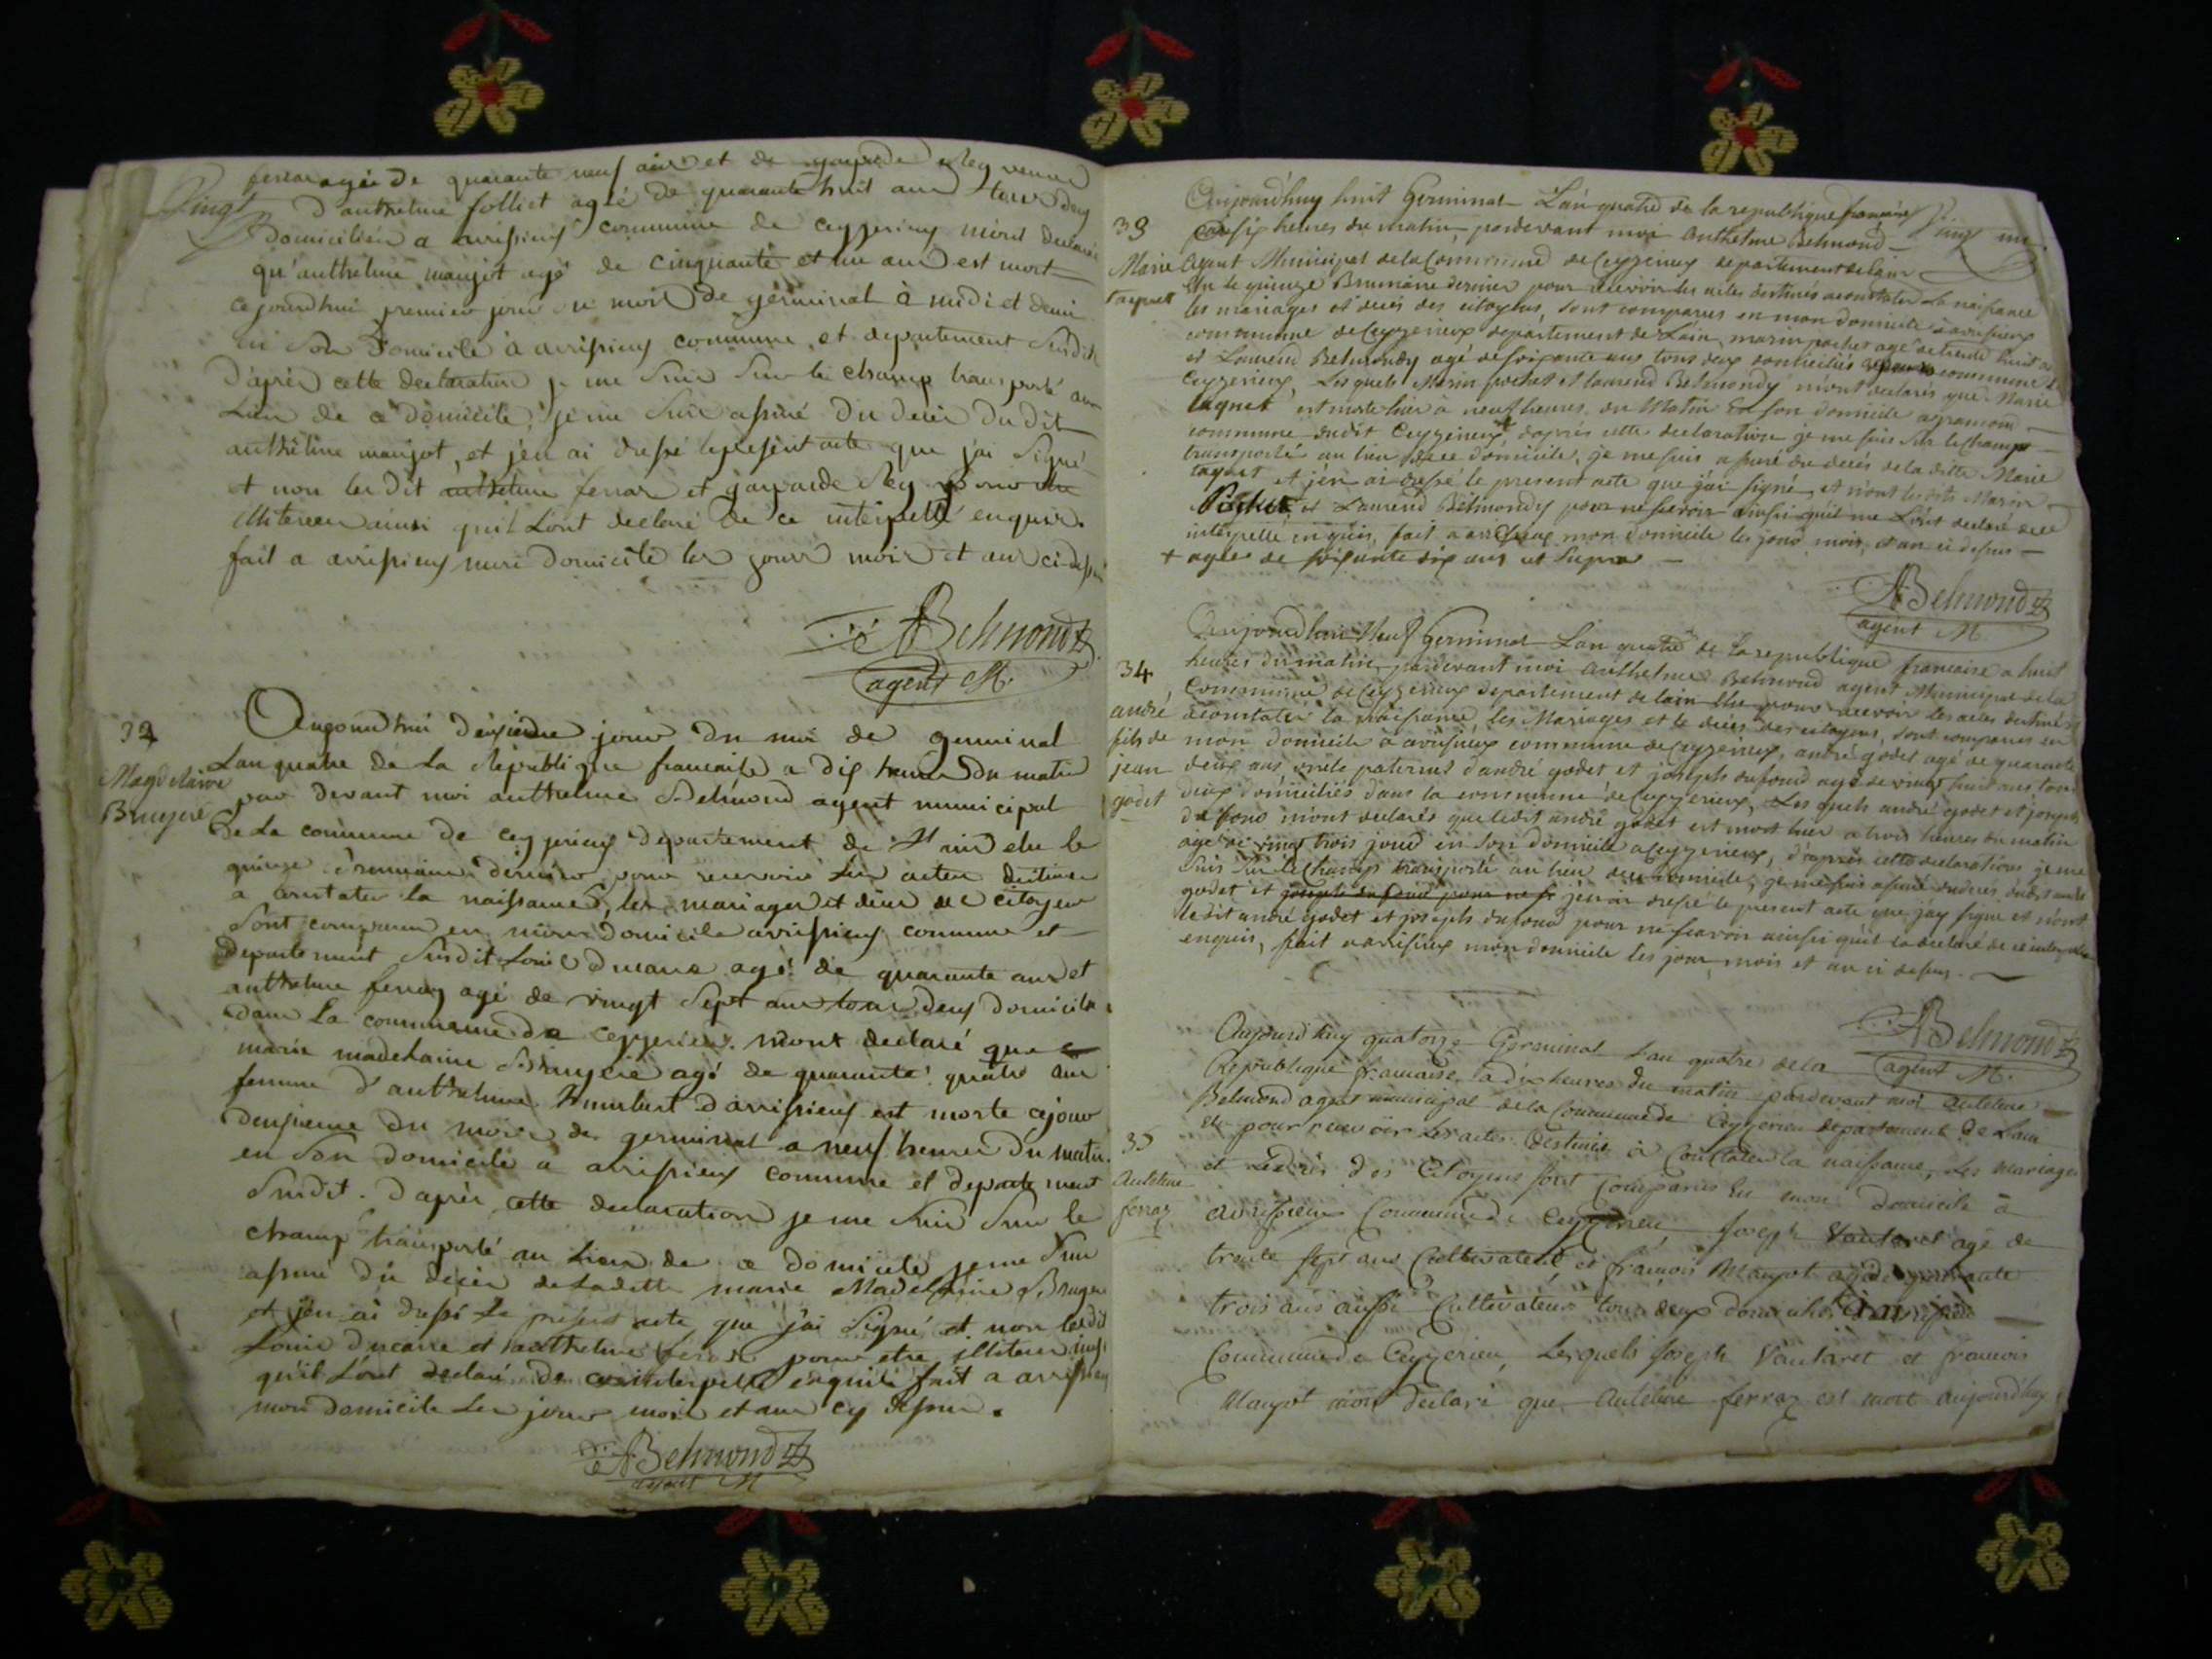 Vingt
ferraz agée de quarante neuf ans et de gasparde Rey veuve
d'anthelme folliet agée de quarante huit ans tous deux
Domiciliés a avrissieux commune de ceyzerieux m'ont declaré
qu'anthelme maujot agé de cinquante et un ans est mort
cejourdhui premier jour du mois de germinal à midi et demi
en son Domicile à avrissieux commune et departement Susdits
D'après cette declaration je me Suis Sur le champ transporté au
Lieu de ce domicile, je me suis assuré du decés du dit
anthelme maujot, et j'en ai dressé le présent acte que j'ai Signé
et non les dit anthelme ferraz et gasparde Rey
illiterés ainsi qu'il L'ont declaré de ce interpellé enquis.
fait a avrissieux mon Domicile les jours mois et an ci-dessus
ABelmond
agent M.
32
Magdelaine
Bruyere
Aujourdhui deuxieme jour du mois de germinal
L'an quatre de la Republique francaise a dix heures du matin
par devant moi anthelme Belmond agent municipal
de La commune de ceyzerieux departement de L'ain elu le
quinze brumaire dernier pour recevoir les actes destinés
a constater la naissance, les mariages et deces des citoyens
Sont comparus en mon domicile avrissieux commune et
departement Susdit Louis Ducarre agé de quarante ans et
anthelme ferraz agé de vingt Sept ans tous deux domiciliés
dans La commune de ceyzerieux. m'ont declaré que
marie madelaine Bruyere agé de quarante quatre ans
femme d'anthelme humbert d'avrissieux est morte cejour
deuxieme du mois de germinal a neuf heures du matin
en Son domicile à avrissieux commune et departement
Susdit. D'après cette declaration je me Suis Sur le
champ transporté au Lieu de ce domicile je me Suis
assuré du decès de Ladette marie Madelaine Bruyere
et j'en ai dressé Le présent acte que j'ai Signé et non lesdit
Louis ducarre et anthelme ferraz pour etre illiterés insi
qu'il L'ont declaré De ce interpellé enquis fait a avrissieux
mon domicile Les jour mois et an cy dessus.
ABelmond
agent M
Vingt un
33
Marie
taguet
Aujourd'huy huit Germinal L'an quatre de la republique francaise
à six heures du matin, pardevant moi Anthelme Belmond
Agent Municipal de la Commune de Ceyzerieux departement de lain
Elu le quinze Brumaire dernier pour recevoir les actes destinés a constater La naissance
les mariages et decés des citoyens, sont comparus en mon domicile à avrissieux
commune de Ceyzerieux departement de Lain, marin pochet agé de trente huit ans
et Laurend Belmondy agé de soixante ans tous deux domiciliés commune de
Ceyzerieux, Lesquels Marin pochet et Laurend Belmondy m'ont declarés que Marie
taguet est morte hier à neuf heures du Matin En son domicile agramont
commune dudit Ceyzerieux, d'après cette declaration je me suis Sur le Champ
transporté au lieu de ce domicile, je me suis assuré du decés de la ditte Marie
taguet et j'en ai dressé le present acte que j'ai signé, et n'ont les dits Marin
Pochet, et Laurend Belmondy pour ne scavoir ainsi quil me L'ont declaré de ce
interpellé enquis, fait a avrissieux mon domicile les jour mois et an ci dessus
+ agée de soixante dix ans ut Supra
ABelmond
agent M.
34
andré
fils de
jean
godet
Aujourdhui Neuf Germinal L'an quatre de la republique francaise a huit
heures du matin, pardevant moi Anthelme Belmond agent Municipal de la
Commune de Ceyzerieux departement de lain Elu pour recevoir les actes destinés
à constater la naissance, les Mariages et le decés des citoyens, sont comparus en
mon domicile à avrissieux commune de Ceyzerieux, andré godet agé de quarante
deux ans, oncle paternel d'andré godet et joseph dufond agé de vingt huit ans tous
deux domiciliés dans la commune de Ceyzerieux, Lesquels andré godet et joseph
du fond m'ont declarés que ledit andré godet est mort hier a trois heures du matin
agé de vingt trois jours en son domicile a Ceyzerieux, d'après cette declaration je me
suis Sur le champ transporté au lieu de ce domicile, je me suis assuré du deces dudit andré
godet et joseph du fond pour ne sc j'en ai dressé le present acte que jay signé et n'ont
ledit andré godet et joseph dufond pour ne scavoir ainsi quil la declaré de ce interpellé
enquis, fait a avrissieux mon domicile les jour, mois et an ci dessus.
ABelmond
agent M.
35
Antelme
ferraz
Aujourd'huy quatorze Germinal L'an quatre de la
Republique francaise, à dix heures du matin pardevant moi Antelme
Belmond agent municipal de la Commune de Ceyzerieu departement de Lain
elu pour recevoir les actes destinés à Constater la naissance, Les mariages
et Le deces des Citoyens sont comparus En mon Domicile à
avrissieu Commune de Ceyzerieu, Joseph Vautaret agé de
trente sept ans Cultivateur, et françois Maujot agé de quarante
trois ans aussi Cultivateur tous deux domiciliés à avrissieu
Commune de Ceyzerieu, Lesquels Joseph Vautaret et françois
Maujot m'ont declaré que Antelme ferraz est mort aujourd'huy